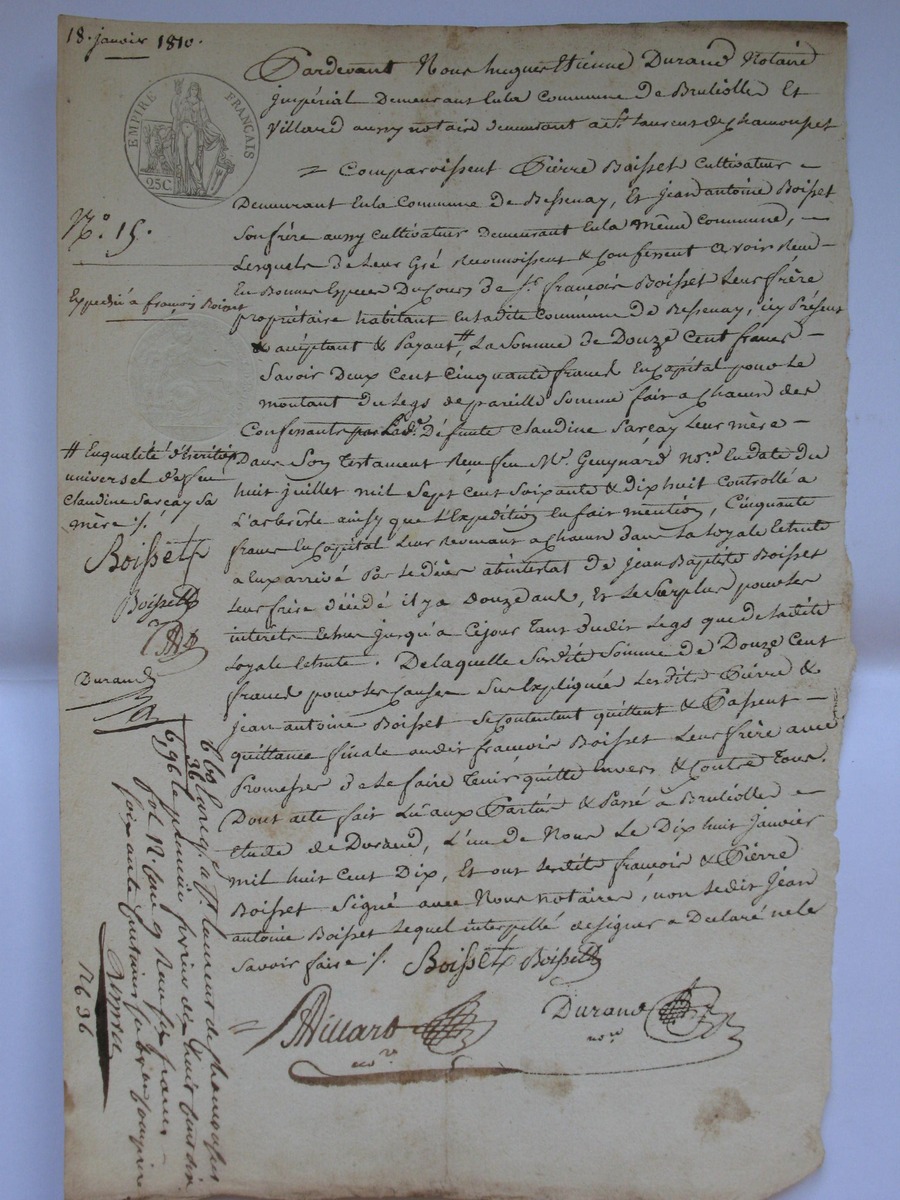 18. janvier 1810.
EMPIRE FRANÇAIS
25C
Pardevant Nous hugues Etienne Durand Notaire
impérial Demeurant En la Commune de Brulliolles Et
Villard aussy notaire demeurant a St. Laurent de Chamousset
= Comparoissent Pierre Boisset Cultivateur
Demeurant En la Commune de Bessenay, Et Jean antoine Boisset
Son frère aussy Cultivateur Demeurant En la Même Commune,
Lesquels de Leur Gré Reconnoissent & Confessent Avoir Reçu
En Bonnes Especes Du Cours de Sr. françois Boisset Leur frère
propriétaire habitant En ladite Commune de Bessenay, icy Présent
& acceptant & Payant #, La Somme de Douze Cent francs
Savoir Deux Cent Cinquante francs En Capital pour le
montant du Legs de pareille Somme fait a Chacun des
Confessants par Lade. Défunte Claudine Sarcay Leur mère
Dans Son Testament Reçu feu Me. Guynard Nore. En date du
huit juillet mil Sept Cent Soixante & dix huit Controllé a
L'arbrêsle ainsy que L'Expedition En fait mention, Cinquante
francs En Capital Leur Revenant a Chacun dans La Loyale Echute
a Eux arrivé Par le décès abintestat de Jean Baptiste Boisset
Leur frère décédé il y a Douze ans, Et Le Surplus pour les
intérêts Echus jusqu'a Cejour Tant dudit Legs que de ladite
Loyale Echute. De laquelle Susdite Somme de Douze Cent
francs pour les Causes Sus Expliquées Lesdits Pierre &
jean antoine Boisset Se Contentent quittent & Passent
quittance finale audit françois Boisset Leur frère avec
Promesses de le faire Tenir quitte Envers & Contre Tous.
Dont acte fait Lû aux Parties & Passé à Brulliolles
Etude de Durand, L'un de Nous Le Dix huit Janvier
mil huit Cent Dix, Et ont Lesdits francois & Pierre
Boisset Signé avec Nous notaires, non Ledit Jean
antoine Boisset Lequel interpellé de signer a Déclaré ne le
Savoir faire ./.
Boisset Boisset
Villard
nore
Durand
nore
No. 15.
Expedié a françois Boisset
# En qualité d'héritier
universel de feue
Claudine Sarcay Sa
mère ./.
Boisset
Boisset
Durand
Enreg. a St. Laurent de Chamousset
le premier fevrier dix huit Cent dix
fol 12